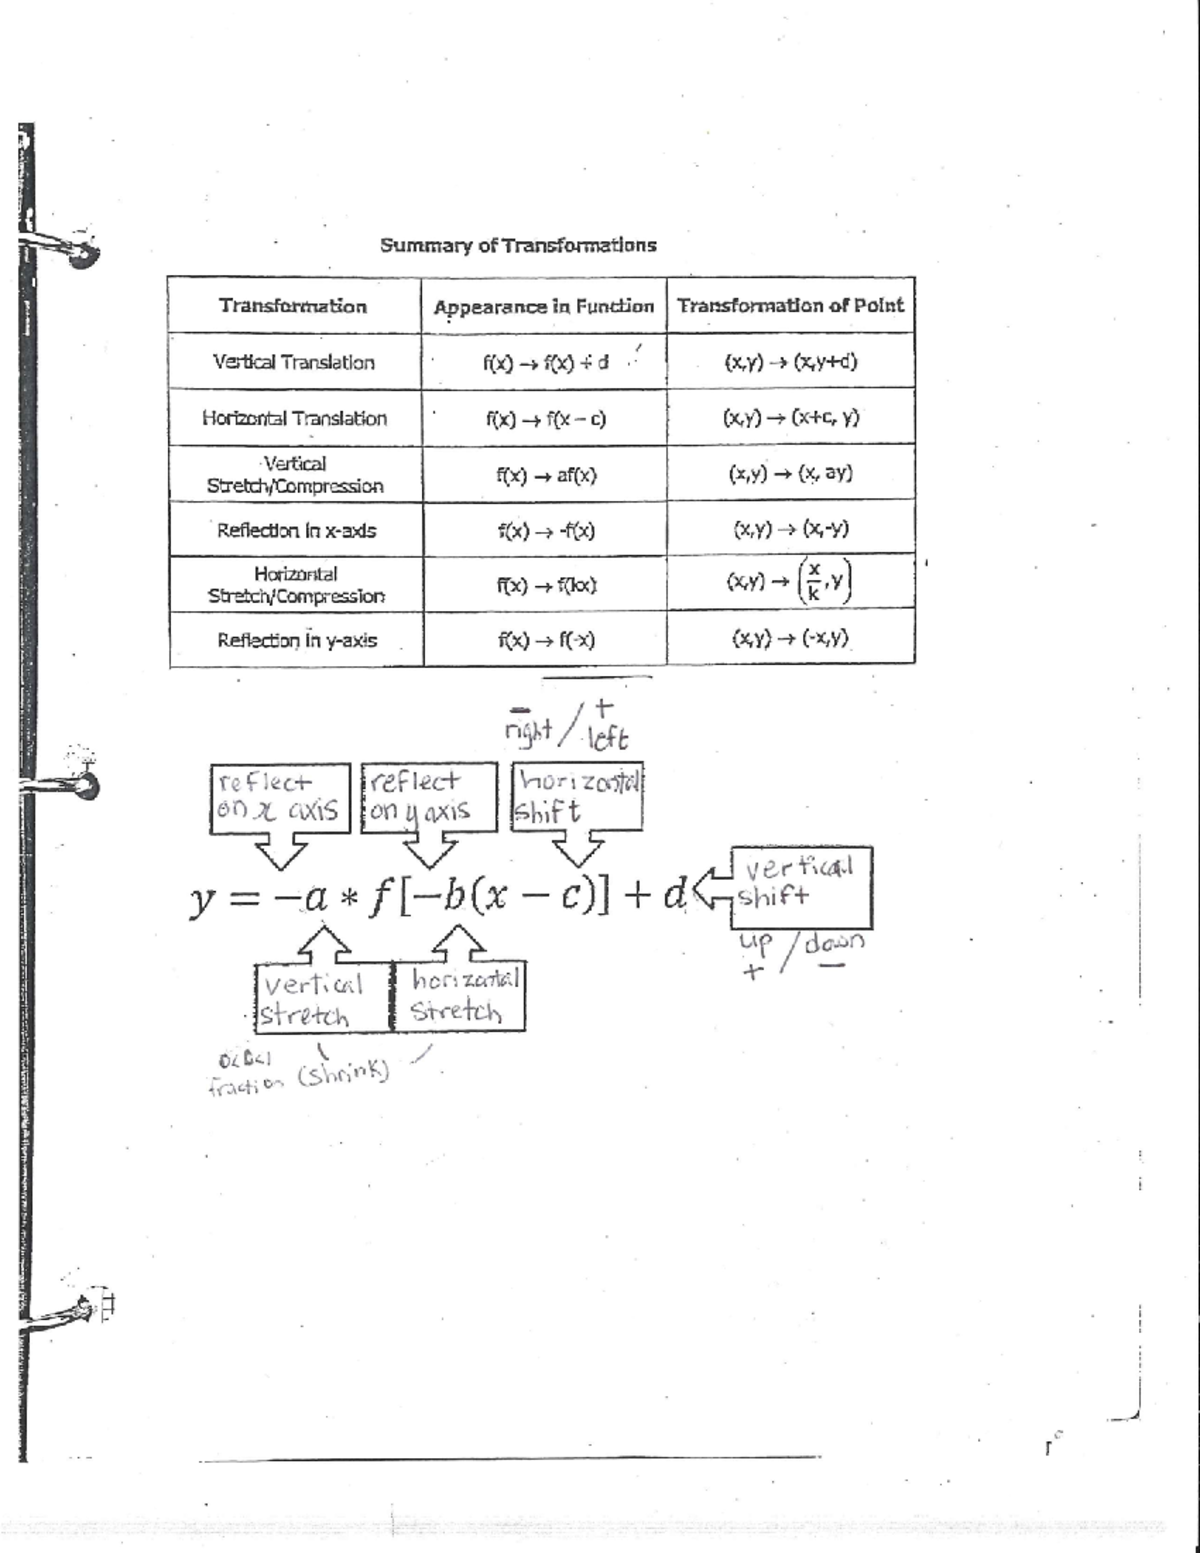 Summary of Transformations
Transformation Appearance in Function Transformation of Point
Vertical Translation f(x) → f(x) + d (x,y) → (x,y+d)
Horizontal Translation f(x) → f(x – c) (x,y) → (x+c, y)
Vertical
Stretch/Compression f(x) → af(x) (x,y) → (x, ay)
Reflection in x-axis f(x) → -f(x) (x,y) → (x,-y)
Horizontal
Stretch/Compression f(x) → f(kx) (x,y) → (x/k, y)
Reflection in y-axis f(x) → f(-x) (x,y) → (-x,y)
− / +
right / left
reflect
on x axis
reflect
on y axis
horizontal
shift
y = −a * f[−b(x − c)] + d
vertical
shift
up / down
+ −
vertical
stretch
horizontal
stretch
fraction (shrink)